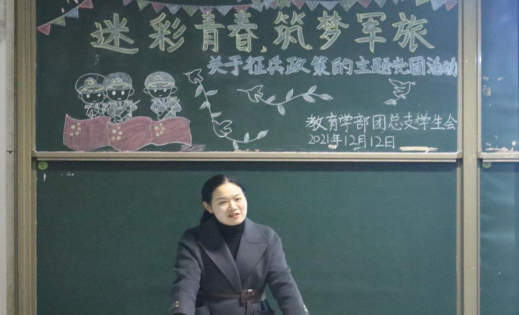 迷彩青春筑梦军旅
关于征兵政策的主题党团活动
教育学部团总支学生会
2021年12月12日